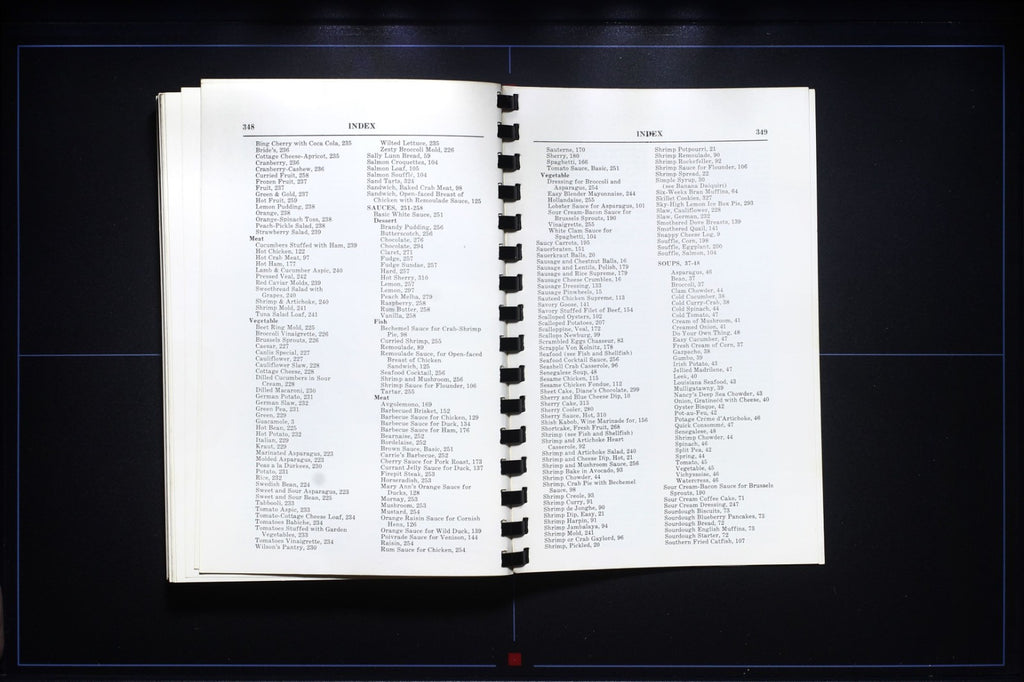 348 INDEX
Ring Cherry with Coca Cola, 235
Bride's, 236
Cottage Cheese-Apricot, 235
Cranberry, 236
Cranberry-Cashew, 236
Curried Fruit, 258
Frozen Fruit, 237
Fruit, 237
Green & Gold, 237
Hot Fruit, 259
Lemon Pudding, 238
Orange, 238
Orange-Spinach Toss, 238
Peach-Pickle Salad, 238
Strawberry Salad, 239
Meat
Cucumbers Stuffed with Ham, 239
Hot Chicken, 122
Hot Crab Meat, 97
Hot Ham, 177
Lamb & Cucumber Aspic, 240
Pressed Veal, 242
Red Caviar Molds, 239
Sweetbread Salad with
Grapes, 240
Shrimp & Artichoke, 240
Shrimp Mold, 241
Tuna Salad Loaf, 241
Vegetable
Beet Ring Mold, 225
Broccoli Vinaigrette, 226
Brussels Sprouts, 226
Caesar, 227
Caulis Special, 227
Cauliflower, 227
Cauliflower Slaw, 228
Cottage Cheese, 228
Dilled Cucumbers in Sour
Cream, 228
Dilled Macaroni, 230
German Potato, 231
German Slaw, 232
Green Pea, 231
Green, 229
Guacamole, 3
Hot Bean, 225
Hot Potato, 232
Italian, 229
Kraut, 229
Marinated Asparagus, 223
Molded Asparagus, 223
Peas a la Durkees, 230
Potato, 231
Rice, 232
Swedish Bean, 224
Sweet and Sour Asparagus, 223
Sweet and Sour Bean, 225
Tabbouli, 233
Tomato Aspic, 233
Tomato-Cottage Cheese Loaf, 234
Tomatoes Babiche, 234
Tomatoes Stuffed with Garden
Vegetables, 233
Tomatoes Vinaigrette, 234
Wilson's Pantry, 230
Wilted Lettuce, 235
Zesty Broccoli Mold, 226
Sally Lunn Bread, 59
Salmon Croquettes, 104
Salmon Loaf, 105
Salmon Souffle, 104
Sand Tarts, 324
Sandwich, Baked Crab Meat, 98
Sandwich, Open-faced Breast of
Chicken with Remoulade Sauce, 125
SAUCES, 251-258
Basic White Sauce, 251
Dessert
Brandy Pudding, 256
Butterscotch, 256
Chocolate, 276
Chocolate, 294
Claret, 271
Fudge, 257
Fudge Sundae, 257
Hard, 257
Hot Sherry, 310
Lemon, 257
Lemon, 297
Peach Melba, 279
Raspberry, 258
Rum Butter, 258
Vanilla, 258
Fish
Bechemel Sauce for Crab-Shrimp
Pie, 98
Curried Shrimp, 255
Remoulade, 89
Remoulade Sauce, for Open-faced
Breast of Chicken
Sandwich, 125
Seafood Cocktail, 256
Shrimp and Mushroom, 256
Shrimp Sauce for Flounder, 106
Tartar, 255
Meat
Avgolemono, 169
Barbecued Brisket, 152
Barbecue Sauce for Chicken, 129
Barbecue Sauce for Duck, 134
Barbecue Sauce for Ham, 176
Bearnaise, 252
Bordelaise, 252
Brown Sauce, Basic, 251
Carrie's Barbecue, 252
Cherry Sauce for Pork Roast, 173
Currant Jelly Sauce for Duck, 137
Firepit Steak, 253
Horseradish, 253
Mary Ann's Orange Sauce for
Ducks, 128
Mornay, 253
Mushroom, 253
Mustard, 254
Orange Raisin Sauce for Cornish
Hens, 126
Orange Sauce for Wild Duck, 139
Poivrade Sauce for Venison, 144
Raisin, 254
Rum Sauce for Chicken, 254
INDEX 349
Sauterne, 170
Sherry, 180
Spaghetti, 166
Tomato Sauce, Basic, 251
Vegetable
Dressing for Broccoli and
Asparagus, 254
Easy Blender Mayonnaise, 244
Hollandaise, 255
Lobster Sauce for Asparagus, 101
Sour Cream-Bacon Sauce for
Brussels Sprouts, 190
Vinaigrette, 255
White Clam Sauce for
Spaghetti, 104
Saucy Carrots, 195
Sauerbraten, 151
Sauerkraut Balls, 20
Sausage and Chestnut Balls, 16
Sausage and Lentils, Polish, 179
Sausage and Rice Supreme, 179
Sausage Cheese Crumbles, 16
Sausage Dressing, 133
Sausage Pinwheels, 15
Sauteed Chicken Supreme, 113
Savory Goose, 141
Savory Stuffed Filet of Beef, 154
Scalloped Oysters, 102
Scalloped Potatoes, 207
Scalloppine, Veal, 172
Scallops Newburg, 99
Scrambled Eggs Chasseur, 83
Scrapple Von Kolnitz, 178
Seafood (see Fish and Shellfish)
Seafood Cocktail Sauce, 256
Seashell Crab Casserole, 96
Senegalese Soup, 48
Sesame Chicken, 115
Sesame Chicken Fondue, 112
Sheet Cake, Diane's Chocolate, 299
Sherry and Blue Cheese Dip, 10
Sherry Cake, 313
Sherry Cooler, 280
Sherry Sauce, Hot, 310
Shish Kabob, Wine Marinade for, 156
Shortcake, Fresh Fruit, 268
Shrimp (see Fish and Shellfish)
Shrimp and Artichoke Heart
Casserole, 92
Shrimp and Artichoke Salad, 240
Shrimp and Cheese Dip, Hot, 21
Shrimp and Mushroom Sauce, 256
Shrimp Bake in Avocado, 93
Shrimp Chowder, 44
Shrimp, Crab Pie with Bechemel
Sauce, 98
Shrimp Creole, 93
Shrimp Curry, 91
Shrimp de Jonghe, 90
Shrimp Dip, Easy, 21
Shrimp Harpin, 91
Shrimp Jambalaya, 94
Shrimp Mold, 241
Shrimp or Crab Gaylord, 96
Shrimp, Pickled, 20
Shrimp Potpourri, 21
Shrimp Remoulade, 90
Shrimp Rockefeller, 92
Shrimp Sauce for Flounder, 106
Shrimp Spread, 22
Simple Syrup, 30
(see Banana Daiquiri)
Six-Weeks Bran Muffins, 64
Skillet Cookies, 327
Sky-High Lemon Ice Box Pie, 293
Slaw, Cauliflower, 228
Slaw, German, 232
Smothered Dove Breasts, 139
Smothered Quail, 141
Snappy Cheese Log, 9
Souffle, Corn, 198
Souffle, Eggplant, 200
Souffle, Salmon, 104
SOUPS, 37-48
Asparagus, 46
Bean, 37
Broccoli, 37
Clam Chowder, 44
Cold Cucumber, 38
Cold Curry-Crab, 38
Cold Spinach, 44
Cold Tomato, 47
Cream of Mushroom, 41
Creamed Onion, 41
Do Your Own Thing, 48
Easy Cucumber, 47
Fresh Cream of Corn, 37
Gazpacho, 38
Gumbo, 39
Irish Potato, 43
Jellied Madrilene, 47
Leek, 40
Louisiana Seafood, 43
Mulligatawny, 39
Nancy's Deep Sea Chowder, 43
Onion, Gratineed with Cheese, 40
Oyster Bisque, 42
Pot-au-Feu, 42
Potage Crème d'Artichoke, 46
Quick Consommé, 47
Senegalese, 48
Shrimp Chowder, 44
Spinach, 46
Split Pea, 42
Spring, 44
Tomato, 45
Vegetable, 45
Vichyssoise, 46
Watercress, 46
Sour Cream-Bacon Sauce for Brussels
Sprouts, 190
Sour Cream Coffee Cake, 71
Sour Cream Dressing, 247
Sourdough Biscuits, 73
Sourdough Blueberry Pancakes, 73
Sourdough Bread, 72
Sourdough English Muffins, 73
Sourdough Starter, 72
Southern Fried Catfish, 107